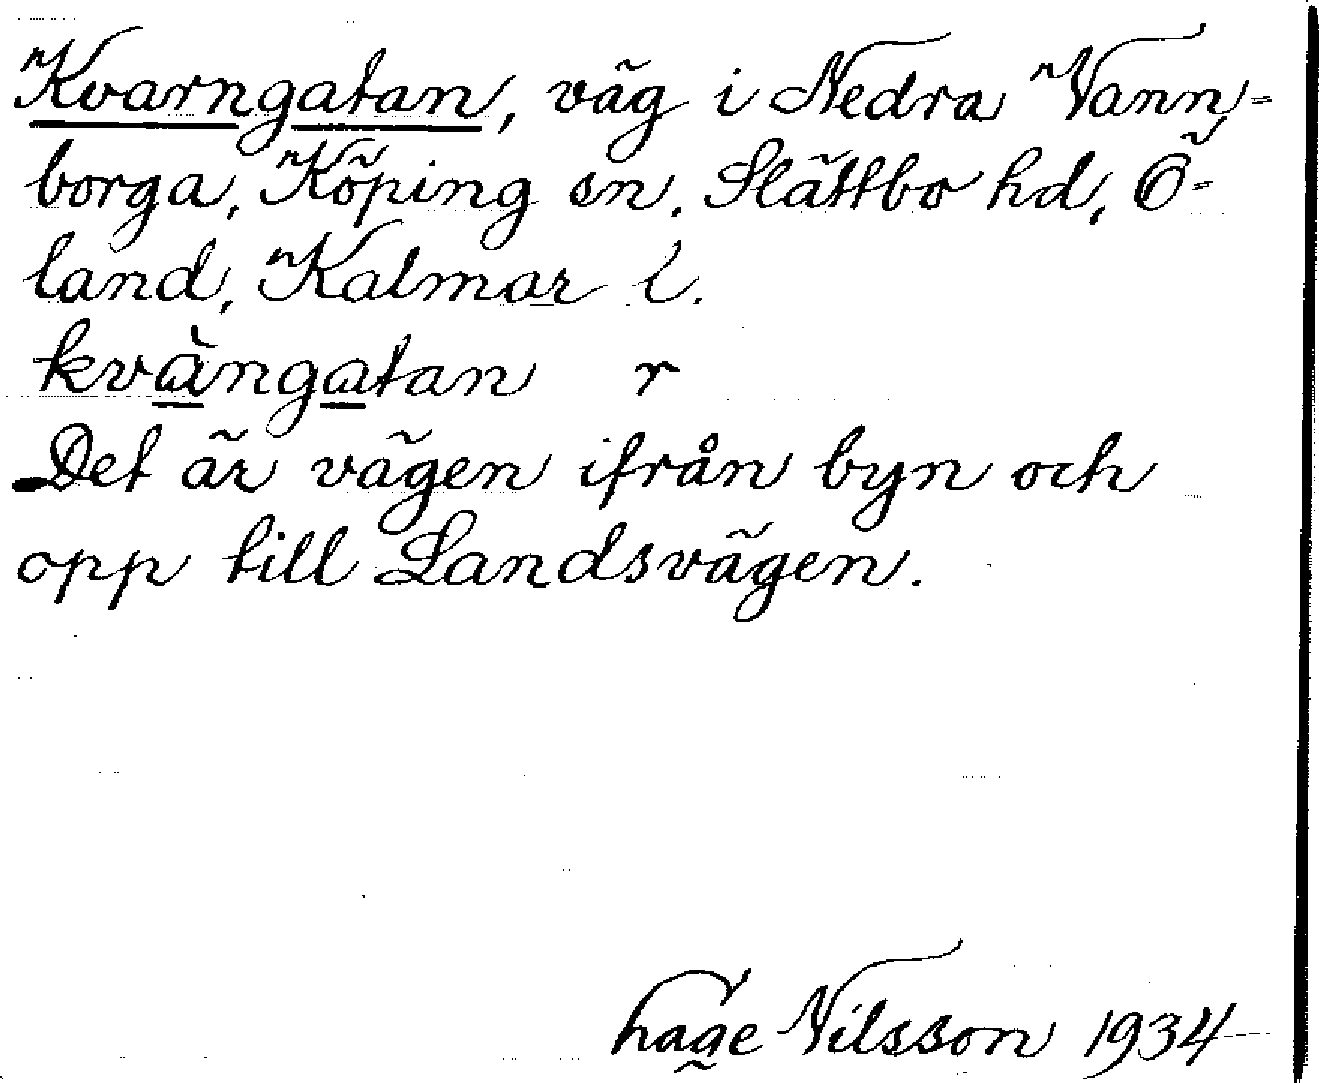 Kvarngatan, väg i Nedra Vann-
borga, Köping sn. Slättbo hd, Ö-
land, Kalmar l.
kvàngatan r
Det är vägen ifrån byn och
opp till Landsvägen.
Nilsson 1934